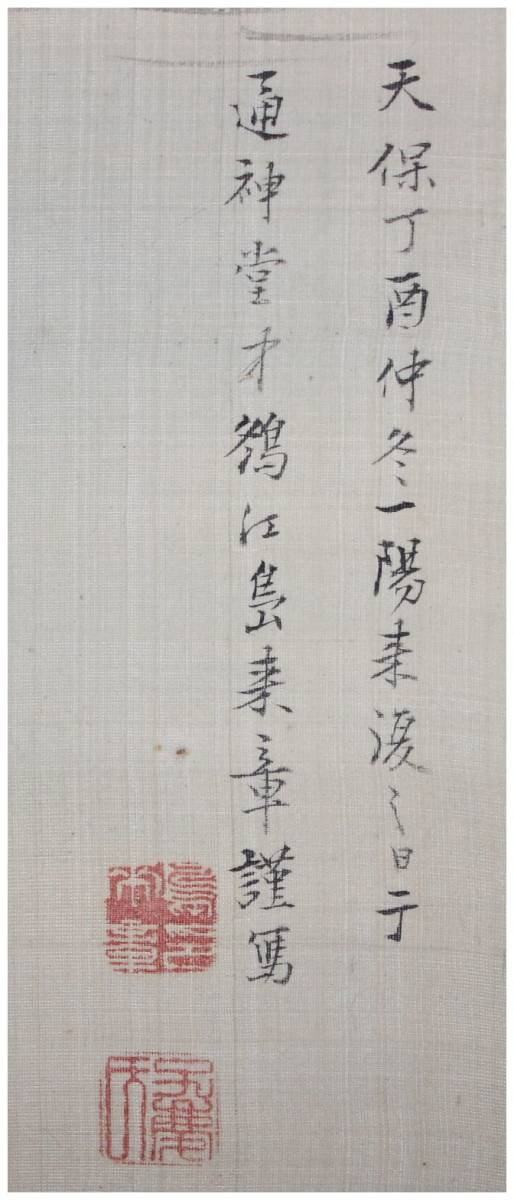 天保丁酉仲冬一陽来復之日于
通神堂才鶴江島来章謹写